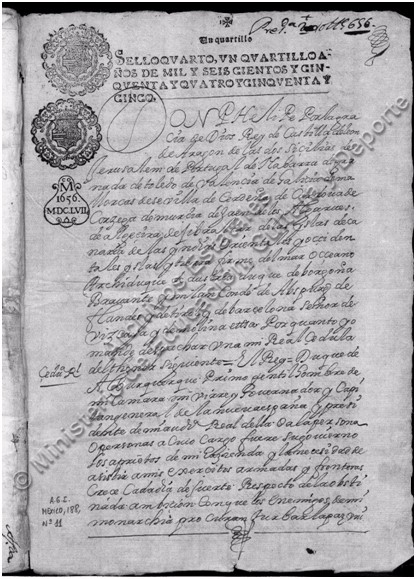 Un quartillo
SELLOQVARTO, VN QVARTILLO A
ÑOS DE MIL Y SEIS CIENTOS Y CIN
QVENTA Y QVATRO Y CINQVENTA Y
CINCO.
M
1656.
MDCLVII
cia de Dios Rey de Castilla de Leon
de Aragon de las dos Sicilias de
Jerusalem de Portugal de Nabarra de gra
nada de toledo de Valencia de Galicia de ma
llorcas de sevilla de Cerdeña de Cordova de
Corzega de murcia de Jaen de los Algarves
de algecira de Gibraltar de las Islas de ca
naria de las yndias orientales y occiden
tales yslas y tierra firme del mar Oceano
Archiduque de Austria duque de borgoña
Brabante y milan Conde de Abspurg de
Flandes de tirol y de barcelona señor de
Vizcaya y de molina etta Por quanto yo
mande despachar una mi Real Cedula
del thenor siguiente = El Rey = Duque de
Alburquerque Primo gentil hombre de
mi Camara mi virrey Governador y Capi
tan general de la nueva españa y presi
dente de mi audiencia Real della o a la persona
o personas a cuio cargo fuere su govierno
los aprietos de mi hazienda y la necesidad de
asistir a mis exercitos armadas y fronteras
Crece cada dia de suerte Respecto de la obsti
nada ambicion con que los enemigos de mi
monarchia procuran turbar la paz
A.G.I.
MEXICO, 188,
Nº 11
© Ministerio de Cultura y Deporte